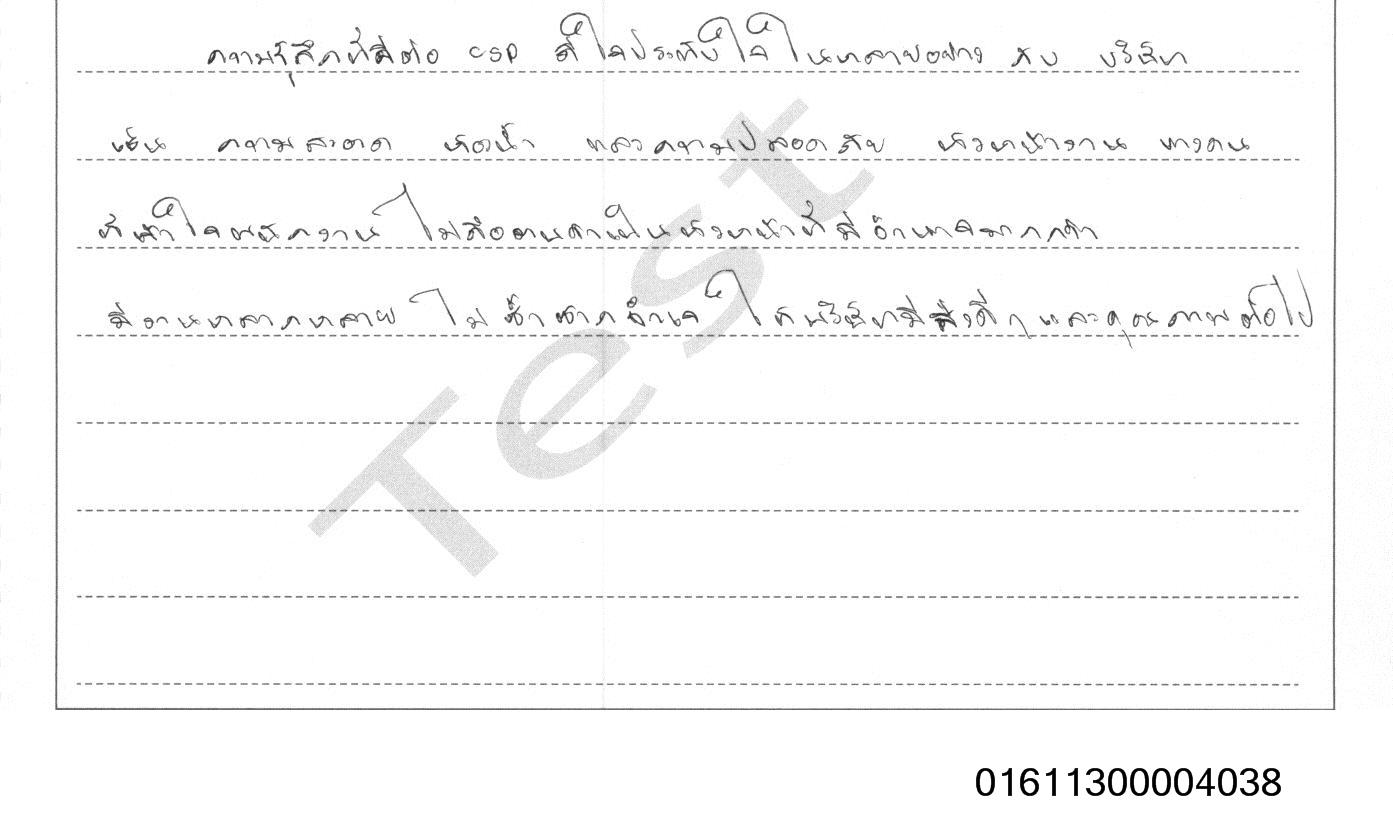 ความรู้สึกที่มีต่อ CSP ดีใจประทับใจในหลายอย่าง กับ บริษัท
เช่น ความสะอาด ห้องน้ำ และความปลอดภัย หัวหน้างาน บางคน
ที่เข้าใจพนักงาน ไม่ถือตนว่าเป็นหัวหน้าที่มีอำนาจมากกว่า
มีงานหลากหลาย ไม่ซ้ำซากจำเจ ให้บริษัทมีสิ่งดีๆและคุณภาพต่อไป
Test
01611300004038